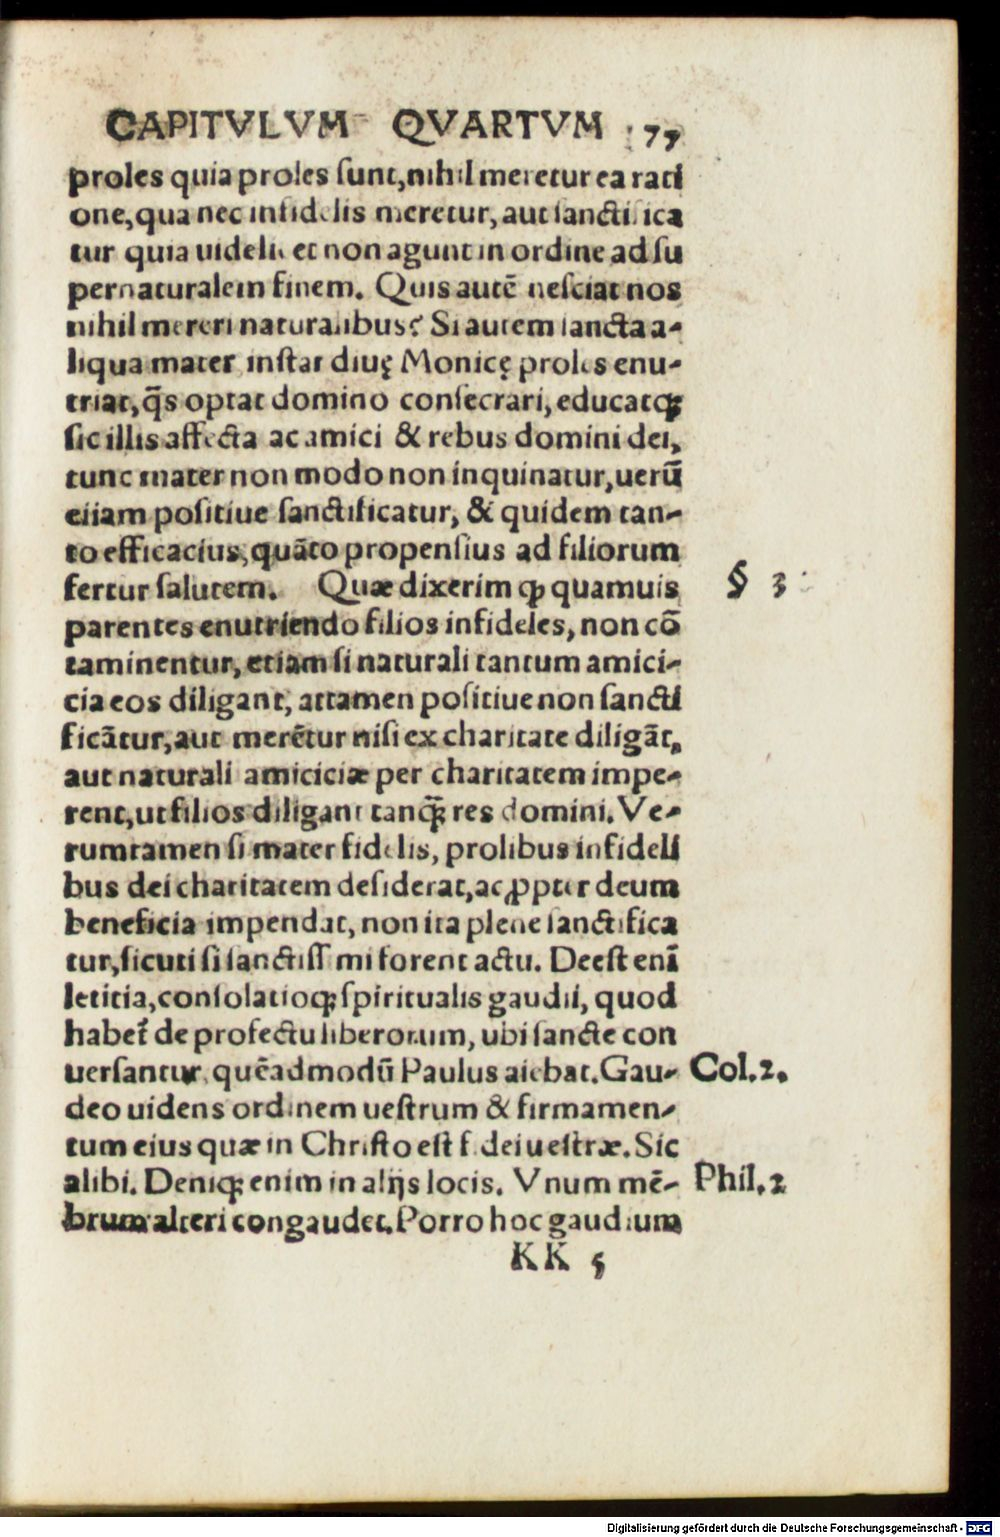 CAPITVLVM QVARTVM 77
proles quia proles ſunt, nihil meretur ea rati
one, qua nec infidelis meretur, aut ſanctifica
tur quia uidelicet non agunt in ordine ad ſu
pernaturalem finem. Quis autẽ neſciat nos
nihil mereri naturalibus? Si autem ſancta a-
liqua mater inſtar diuę Monicę proles enu-
triat, q̃s optat domino conſecrari, educatqꝫ
ſic illis affecta ac amici & rebus domini dei,
tunc mater non modo non inquinatur, uerũ
etiam poſitiue ſanctificatur, & quidem tan-
to efficacius, quãto propenſius ad filiorum
fertur ſalutem. Quæ dixerim ꝙ quamuis
§ 3
parentes enutriendo filios infideles, non cõ
taminentur, etiam ſi naturali tantum amici-
cia eos diligant, attamen poſitiue non ſancti
ficãtur, aut merẽtur niſi ex charitate diligãt,
aut naturali amiciciæ per charitatem impe-
rent, ut filios diligant tanqꝫ̃ res domini. Ve-
rumtamen ſi mater fidelis, prolibus infideli
bus dei charitatem deſiderat, ac ꝓpter deum
beneficia impendat, non ita plene ſanctifica
tur, ſicuti ſi ſanctiſſimi forent actu. Deeſt enĩ
letitia, conſolatioqꝫ ſpiritualis gaudii, quod
habet᷑ de profectu liberorum, ubi ſancte con
uerſantur, quẽadmodũ Paulus aiebat. Gau-
Col. 2.
deo uidens ordinem ueſtrum & firmamen-
tum eius quæ in Chriſto eſt fidei ueſtræ. Sic
alibi. Deniqꝫ enim in alijs locis. Vnum mẽ-
Phil. 2
brum alteri congaudet. Porro hoc gaudium
KK 5
Digitalisierung gefördert durch die Deutsche Forschungsgemeinschaft - DFG